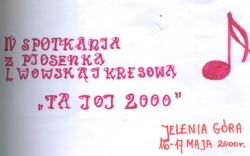 IV SPOTKANIA
Z PIOSENKĄ
LWOWSKĄ I KRESOWĄ
„TA JOJ 2000"
JELENIA GÓRA
16-17 MAJA 2000r.